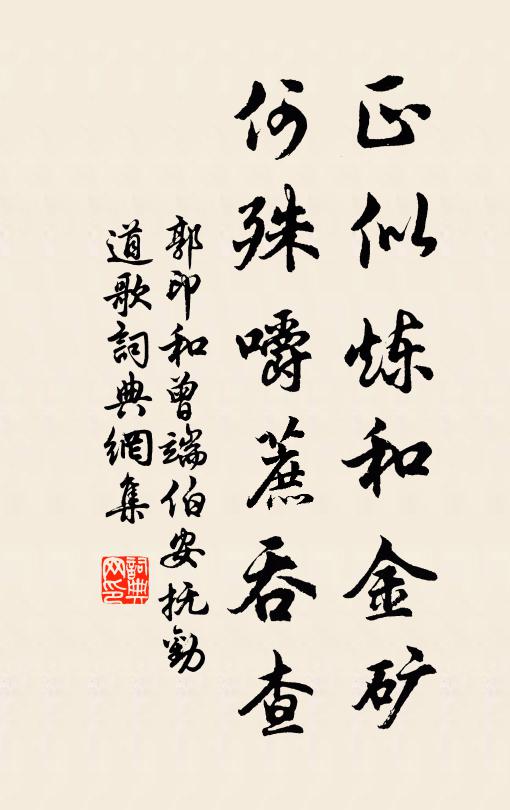 正似炼和金矿
何殊嚼蔗吞查
郭印和曾端伯安抚劝
道歌詞典網集
詞典网印